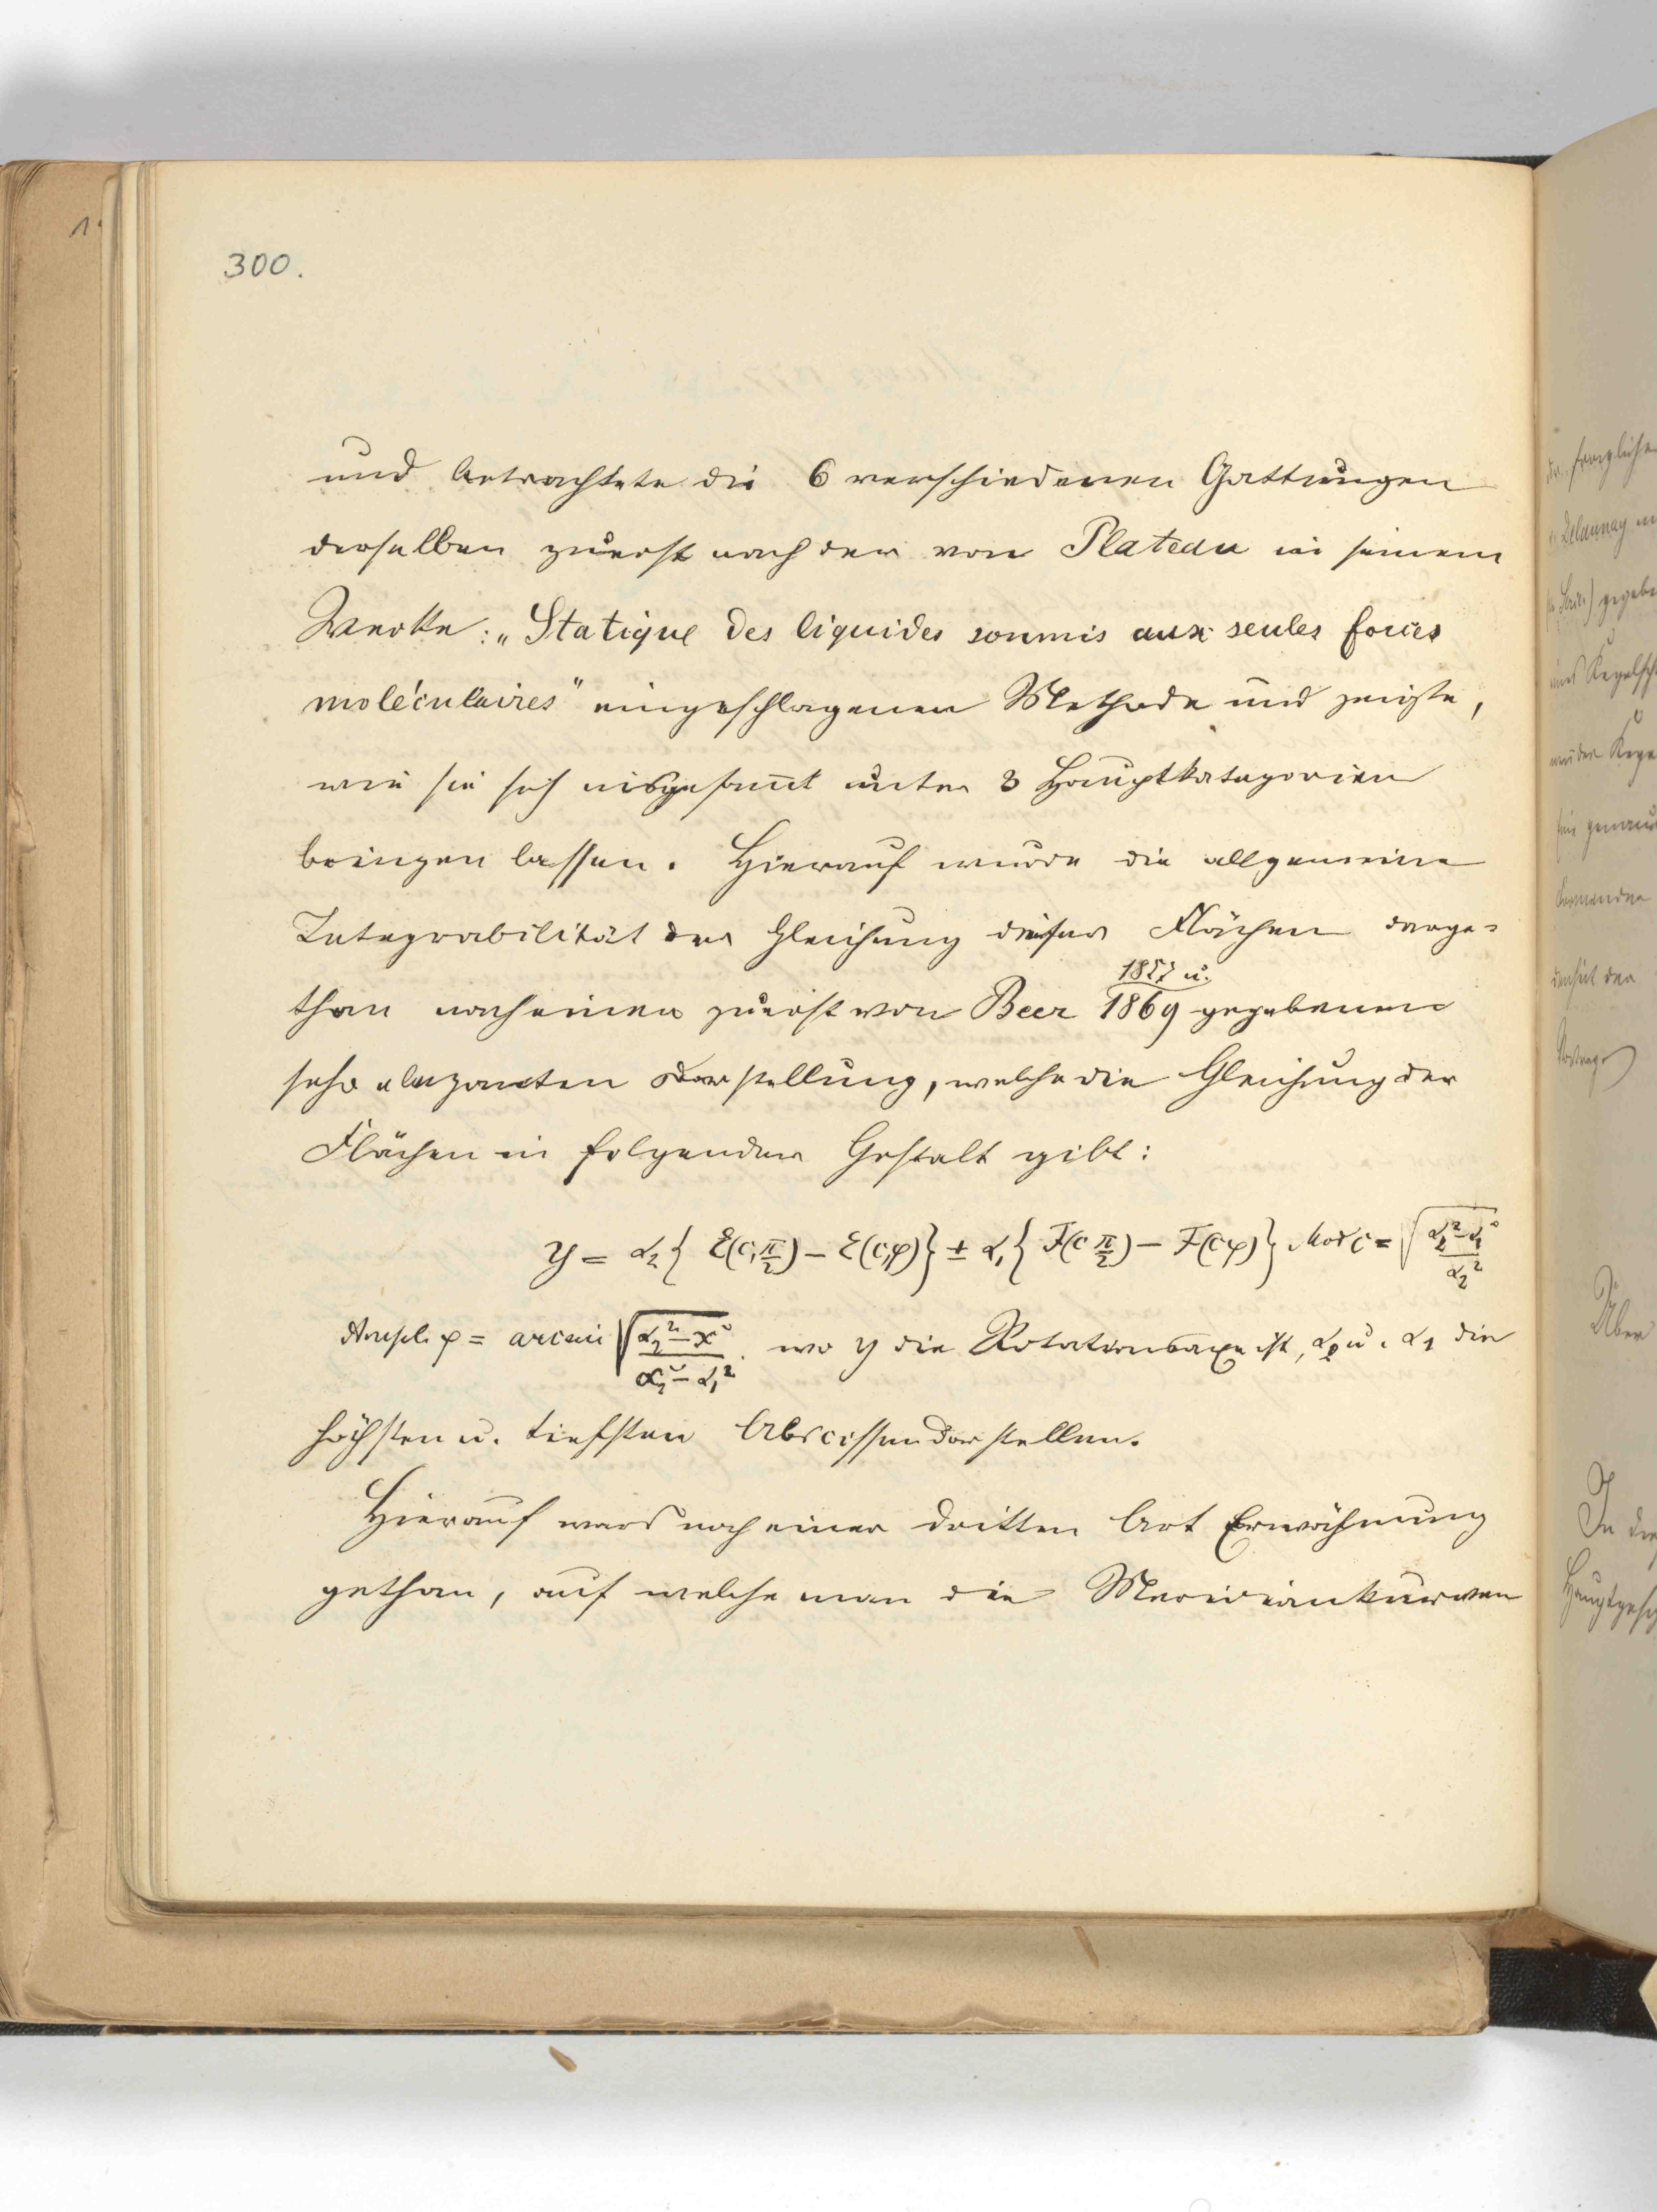 300.
und betrachtete die 6 verschiedenen Gattungen
derselben zuerst nach der von Plateau in seinem
Werke: „Statique des liquides soumis aux seules forces
moléculaires" eingeschlagenen Methode und zeigte,
wie sie sich insgesam̄t unter 3 Hauptkategorien
bringen lassen. Hierauf wurde die allgemeine
Integrabilität der Gleichung dieser Flächen darge=
1857 u.
than nach einer zuerst von Beer 1869 gegebenen
sehr eleganten Darstellung, welche die Gleichung der
Flächen in folgender Gestalt gibt:
y = α₂{ E(c, π/2) – E(c,φ)} ± α₁{ F(c π/2) – F(c,φ)} Mod c = √((α₂² – α₁²)/α₂²)
Ampl. φ = arcsin √((α₂² – x²)/(α₂² – α₁²)). wo y die Rotationsaxe ist, α₂ u. α₁ die
höchsten u. tiefsten Abscissen darstellen.
Hierauf ward noch einer dritten Art Erwähnung
gethan, auf welche man die Meridiankurven
der fraglichen
Delaunay
gegebe
eines Kegelsch
Über
In die
Hauptgesch